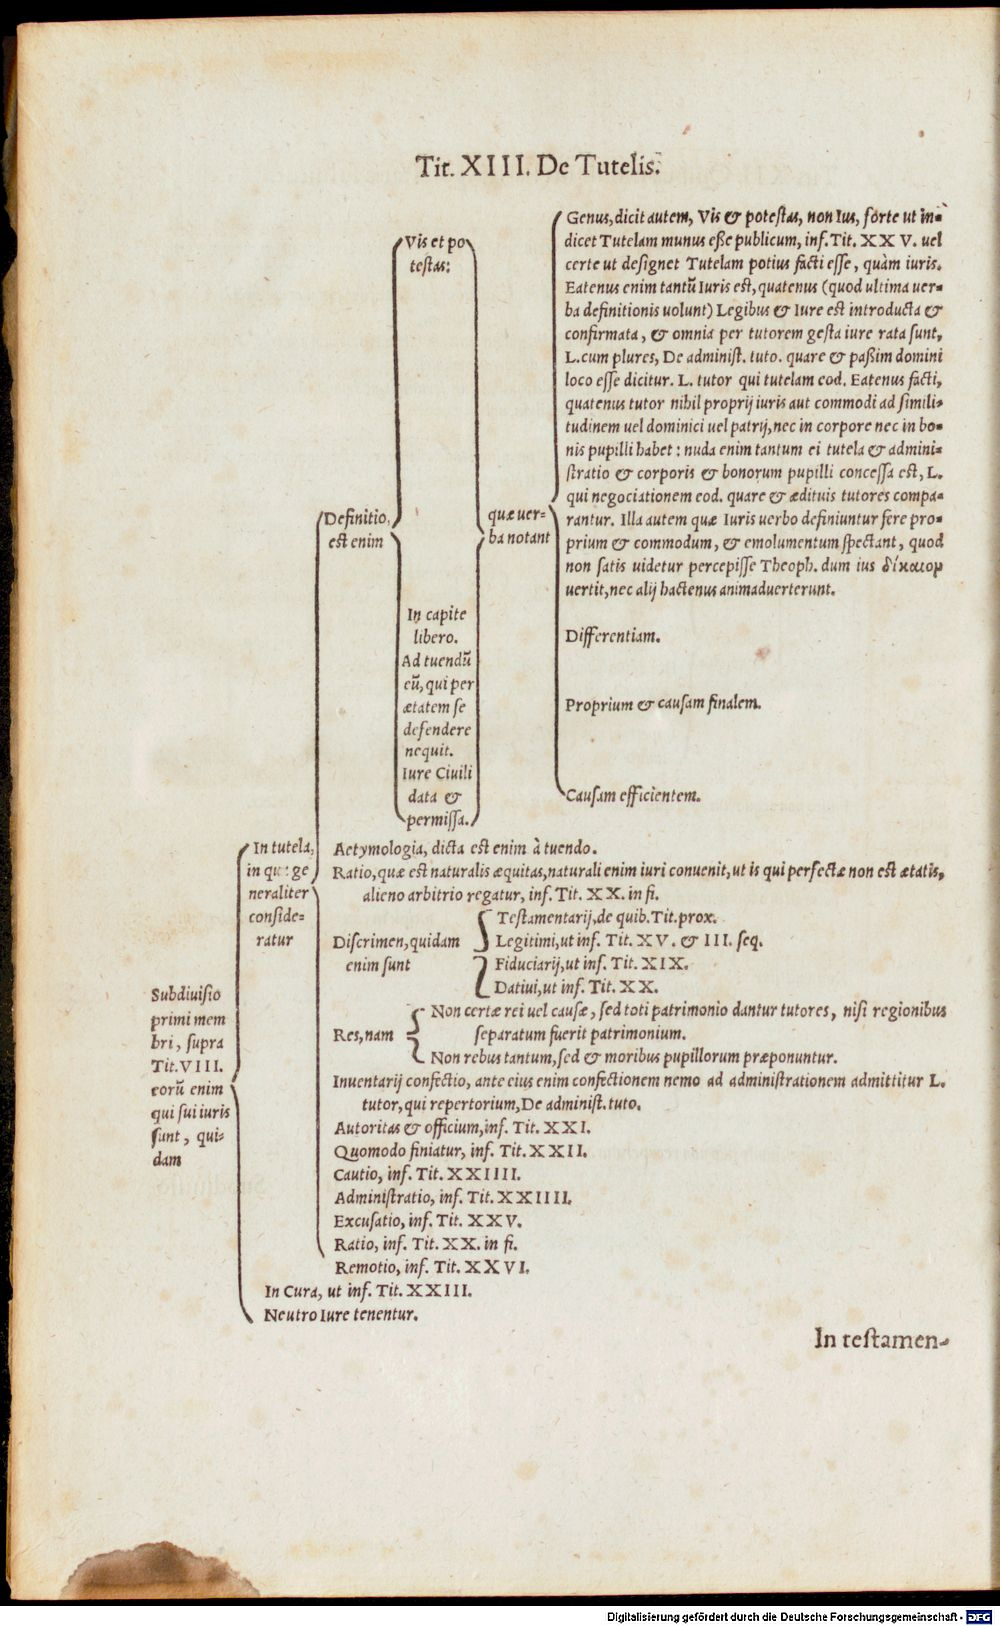 Tit. XIII. De Tutelis.
Subdiuisio
primi mem
bri, supra
Tit. VIII.
eorũ enim
qui sui iuris
sunt, qui-
dam
In tutela,
in qu ge
neraliter
conside-
ratur
Definitio,
est enim
Vis et po
testas:
In capite
libero.
Ad tuendũ
eũ, qui per
ætatem se
defendere
nequit.
Iure Ciuili
data &
permissa.
quæ uer-
ba notant
Genus, dicit autem, Vis & potestas, non Ius, forte ut in-
dicet Tutelam munus esse publicum, inf. Tit. XXV. uel
certe ut designet Tutelam potius facti esse, quàm iuris.
Eatenus enim tantũ Iuris est, quatenus (quod ultima uer-
ba definitionis uolunt) Legibus & Iure est introducta &
confirmata, & omnia per tutorem gesta iure rata sunt,
L. cum plures, De administ. tuto. quare & paßim domini
loco esse dicitur. L. tutor qui tutelam eod. Eatenus facti,
quatenus tutor nihil proprij iuris aut commodi ad simili-
tudinem uel dominici uel patrij, nec in corpore nec in bo-
nis pupilli habet: nuda enim tantum ei tutela & admini-
stratio & corporis & bonorum pupilli concessa est, L.
qui negociationem eod. quare & ædituis tutores compa-
rantur. Illa autem quæ Iuris uerbo definiuntur fere pro-
prium & commodum, & emolumentum spectant, quod
non satis uidetur percepisse Theoph. dum ius δίκαιομ
uertit, nec alij hactenus animaduerterunt.
Differentiam.
Proprium & causam finalem.
Causam efficientem.
Aetymologia, dicta est enim à tuendo.
Ratio, quæ est naturalis æquitas, naturali enim iuri conuenit, ut is qui perfectæ non est ætatis,
alieno arbitrio regatur, inf. Tit. XX. in fi.
Discrimen, quidam
enim sunt
Testamentarij, de quib. Tit. prox.
Legitimi, ut inf. Tit. XV. & III. seq.
Fiduciarij, ut inf. Tit. XIX.
Datiui, ut inf. Tit. XX.
Res, nam
Non certæ rei uel causæ, sed toti patrimonio dantur tutores, nisi regionibus
separatum fuerit patrimonium.
Non rebus tantum, sed & moribus pupillorum præponuntur.
Inuentarij confectio, ante eius enim confectionem nemo ad administrationem admittitur L.
tutor, qui repertorium, De administ. tuto.
Autoritas & officium, inf. Tit. XXI.
Quomodo finiatur, inf. Tit. XXII.
Cautio, inf. Tit. XXIIII.
Administratio, inf. Tit. XXIIII.
Excusatio, inf. Tit. XXV.
Ratio, inf. Tit. XX. in fi.
Remotio, inf. Tit. XXVI.
In Cura, ut inf. Tit. XXIII.
Neutro Iure tenentur.
In testamen-
Digitalisierung gefördert durch die Deutsche Forschungsgemeinschaft - DFG